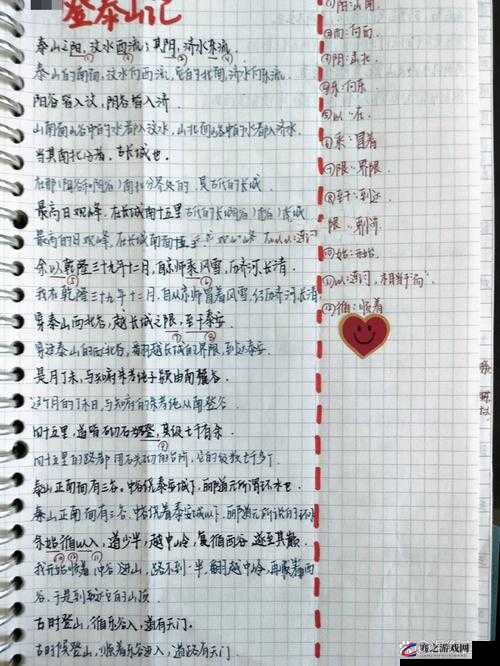 登泰山记
泰山之阳，汶水西流；其阴，济水东流．
泰山的南面，汶水向西流，它的北面，济水向东流．
阳谷皆入汶，阴谷皆入济．
山南面山谷中的水都入汶水，山北面谷中的水都入济水．
当其南北分者，古长城也．
在那（阳谷和阴谷）南北分界处的，是古代的长城．
最高日观峰，在长城南十五里
最高的日观峰，在长城南面十五
余以乾隆三十九年十二月，自京师乘风雪，历齐河长清，
我在乾隆三十九年十二月，自从京师冒着风雪，经历齐河长清，
穿泰山西北谷，越长城之限，至于泰安．
穿过泰山的西北谷，翻越长城的界限，到达泰安
是月丁未，与知府朱孝纯子颍由南麓登．
这个月的丁未日，与知府朱孝纯从南登
四十五里，道皆砌石为磴，其级七千有余．
四十五里的路都用石头砌的台阶，它的级数七千多了．
泰山正南面有三谷，中谷绕泰安城下，郦道元所谓环水也．
泰山正南面有三谷．中谷绕着泰安城下，郦道元所说的环
余始循以入，道少半，越中岭，复循西谷，遂至其巅．
我开始顺着中谷进山，路不到一半，翻越中岭，再顺着西
谷，于是到了它的山顶．
古时登山，循东谷入，道有天门．
古时候登山，顺着东谷进入，道路有天门．
①阳：山南
②西：向西
③阴：山北
④东：向东
⑤以：在
⑥乘：冒着
⑦限：界限
⑧至于：到达
⑩始：开始
⑪以：连词，相当于"而"
⑫循：顺着
寒之游戏网